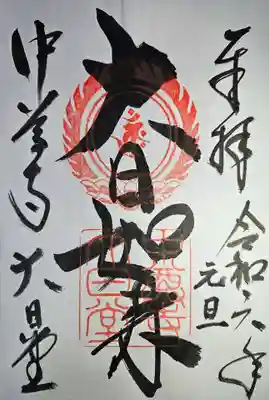 奉拝
令和六年
元旦
大日如来
中尊寺 大日堂